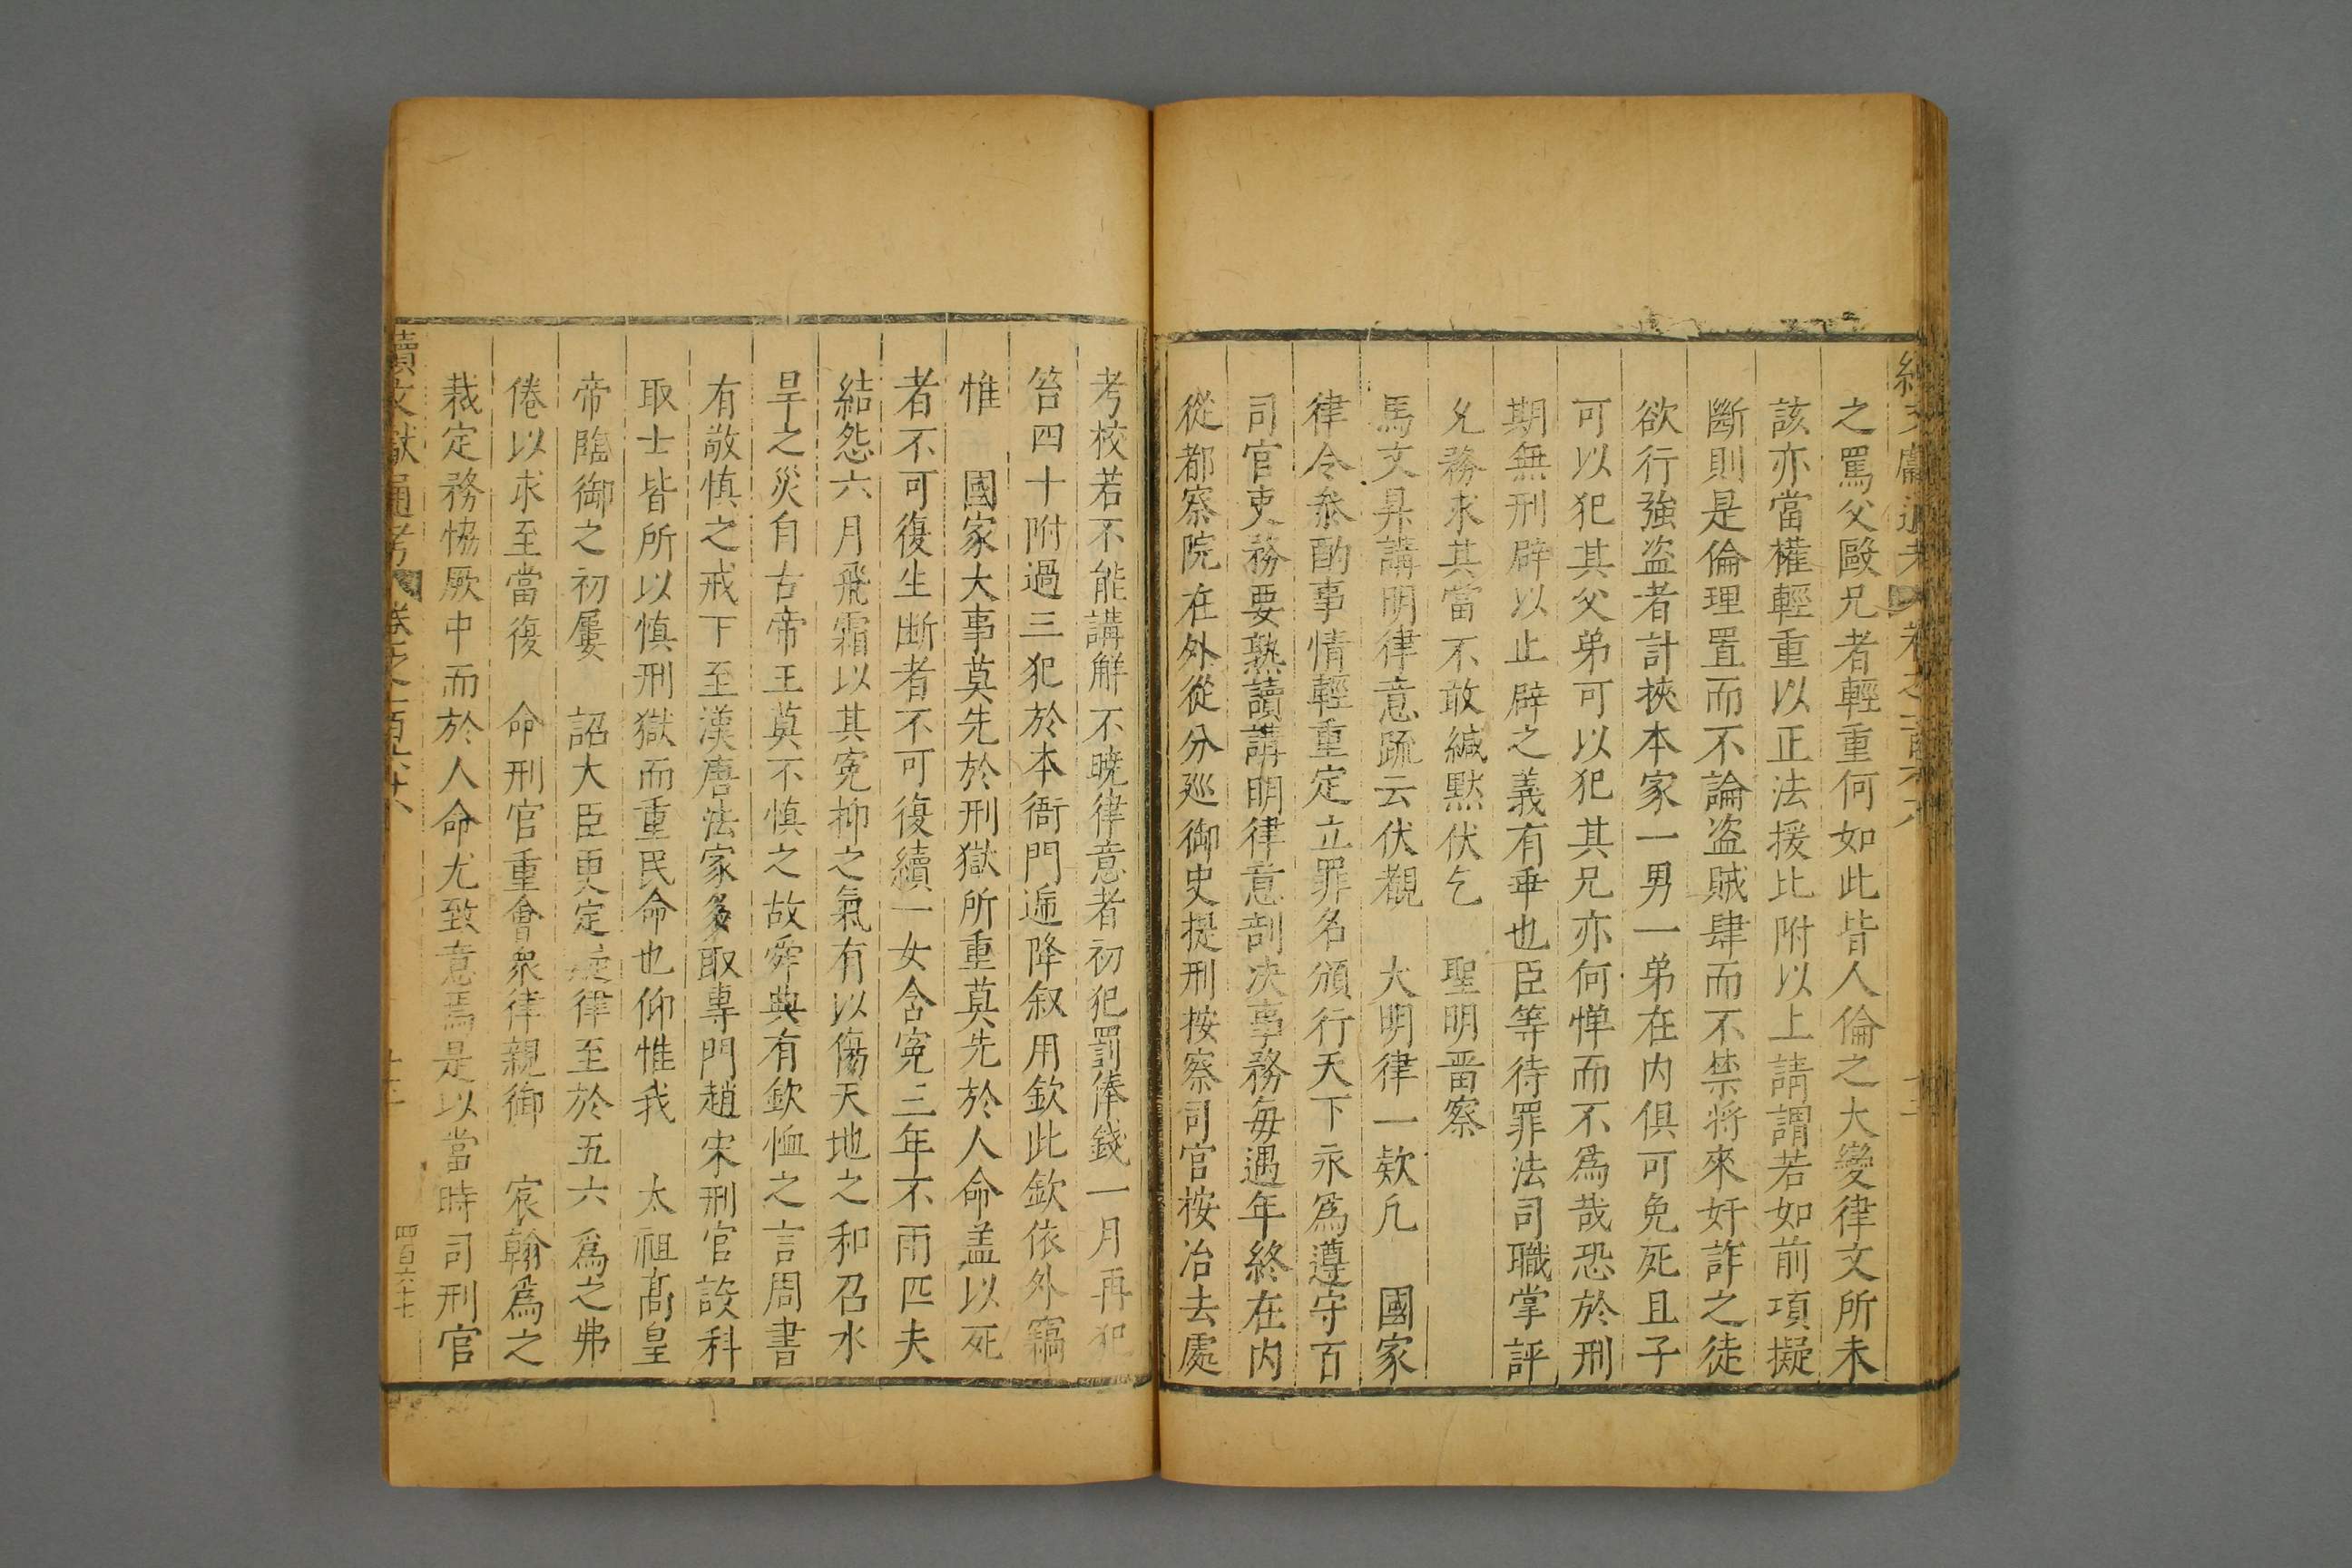 之罵父毆兄者輕重何如此皆人倫之大變律文所未
該亦當權輕重以正法援比附以上請謂若如前項擬
斷則是倫理置而不論盗賊肆而不禁将來奸詐之徒
欲行強盗者計挾本家一男一弟在内俱可免死且子
可以犯其父弟可以犯其兄亦何憚而不為哉恐於刑
期無刑辟以止辟之義有乖也臣等待罪法司職掌評
允務求其當不敢緘黙伏乞　聖明晋察
馬文昇講明律意疏云伏覩　大明律一欵凡　國家
律令叅酌事情輕重定立罪名頒行天下永為遵守百
司官吏務要熟讀講明律意剖决事務每遇年終在内
從都察院在外從分廵御史提刑按察司官按治去處
考校若不能講解不曉律意者初犯罰俸錢一月再犯
笞四十附過三犯於本衙門逓降叙用欽此欽依外竊
惟　國家大事莫先於刑獄所重莫先於人命盖以死
者不可復生断者不可復續一女含寃三年不雨匹夫
結怨六月飛霜以其寃抑之氣有以傷天地之和召水
旱之災自古帝王莫不慎之故舜典有欽恤之言周書
有敬慎之戒下至漢唐法家多取專門趙宋刑官設科
取士皆所以慎刑獄而重民命也仰惟我　太祖髙皇
帝臨御之初屢　詔大臣更定律至於五六為之弗
倦以求至當復　命刑官重會衆律親御　宸翰為之
裁定務恊厥中而於人命尤致意焉是以當時司刑官
續文獻通考　卷之一百六十八　十三　四百六十七